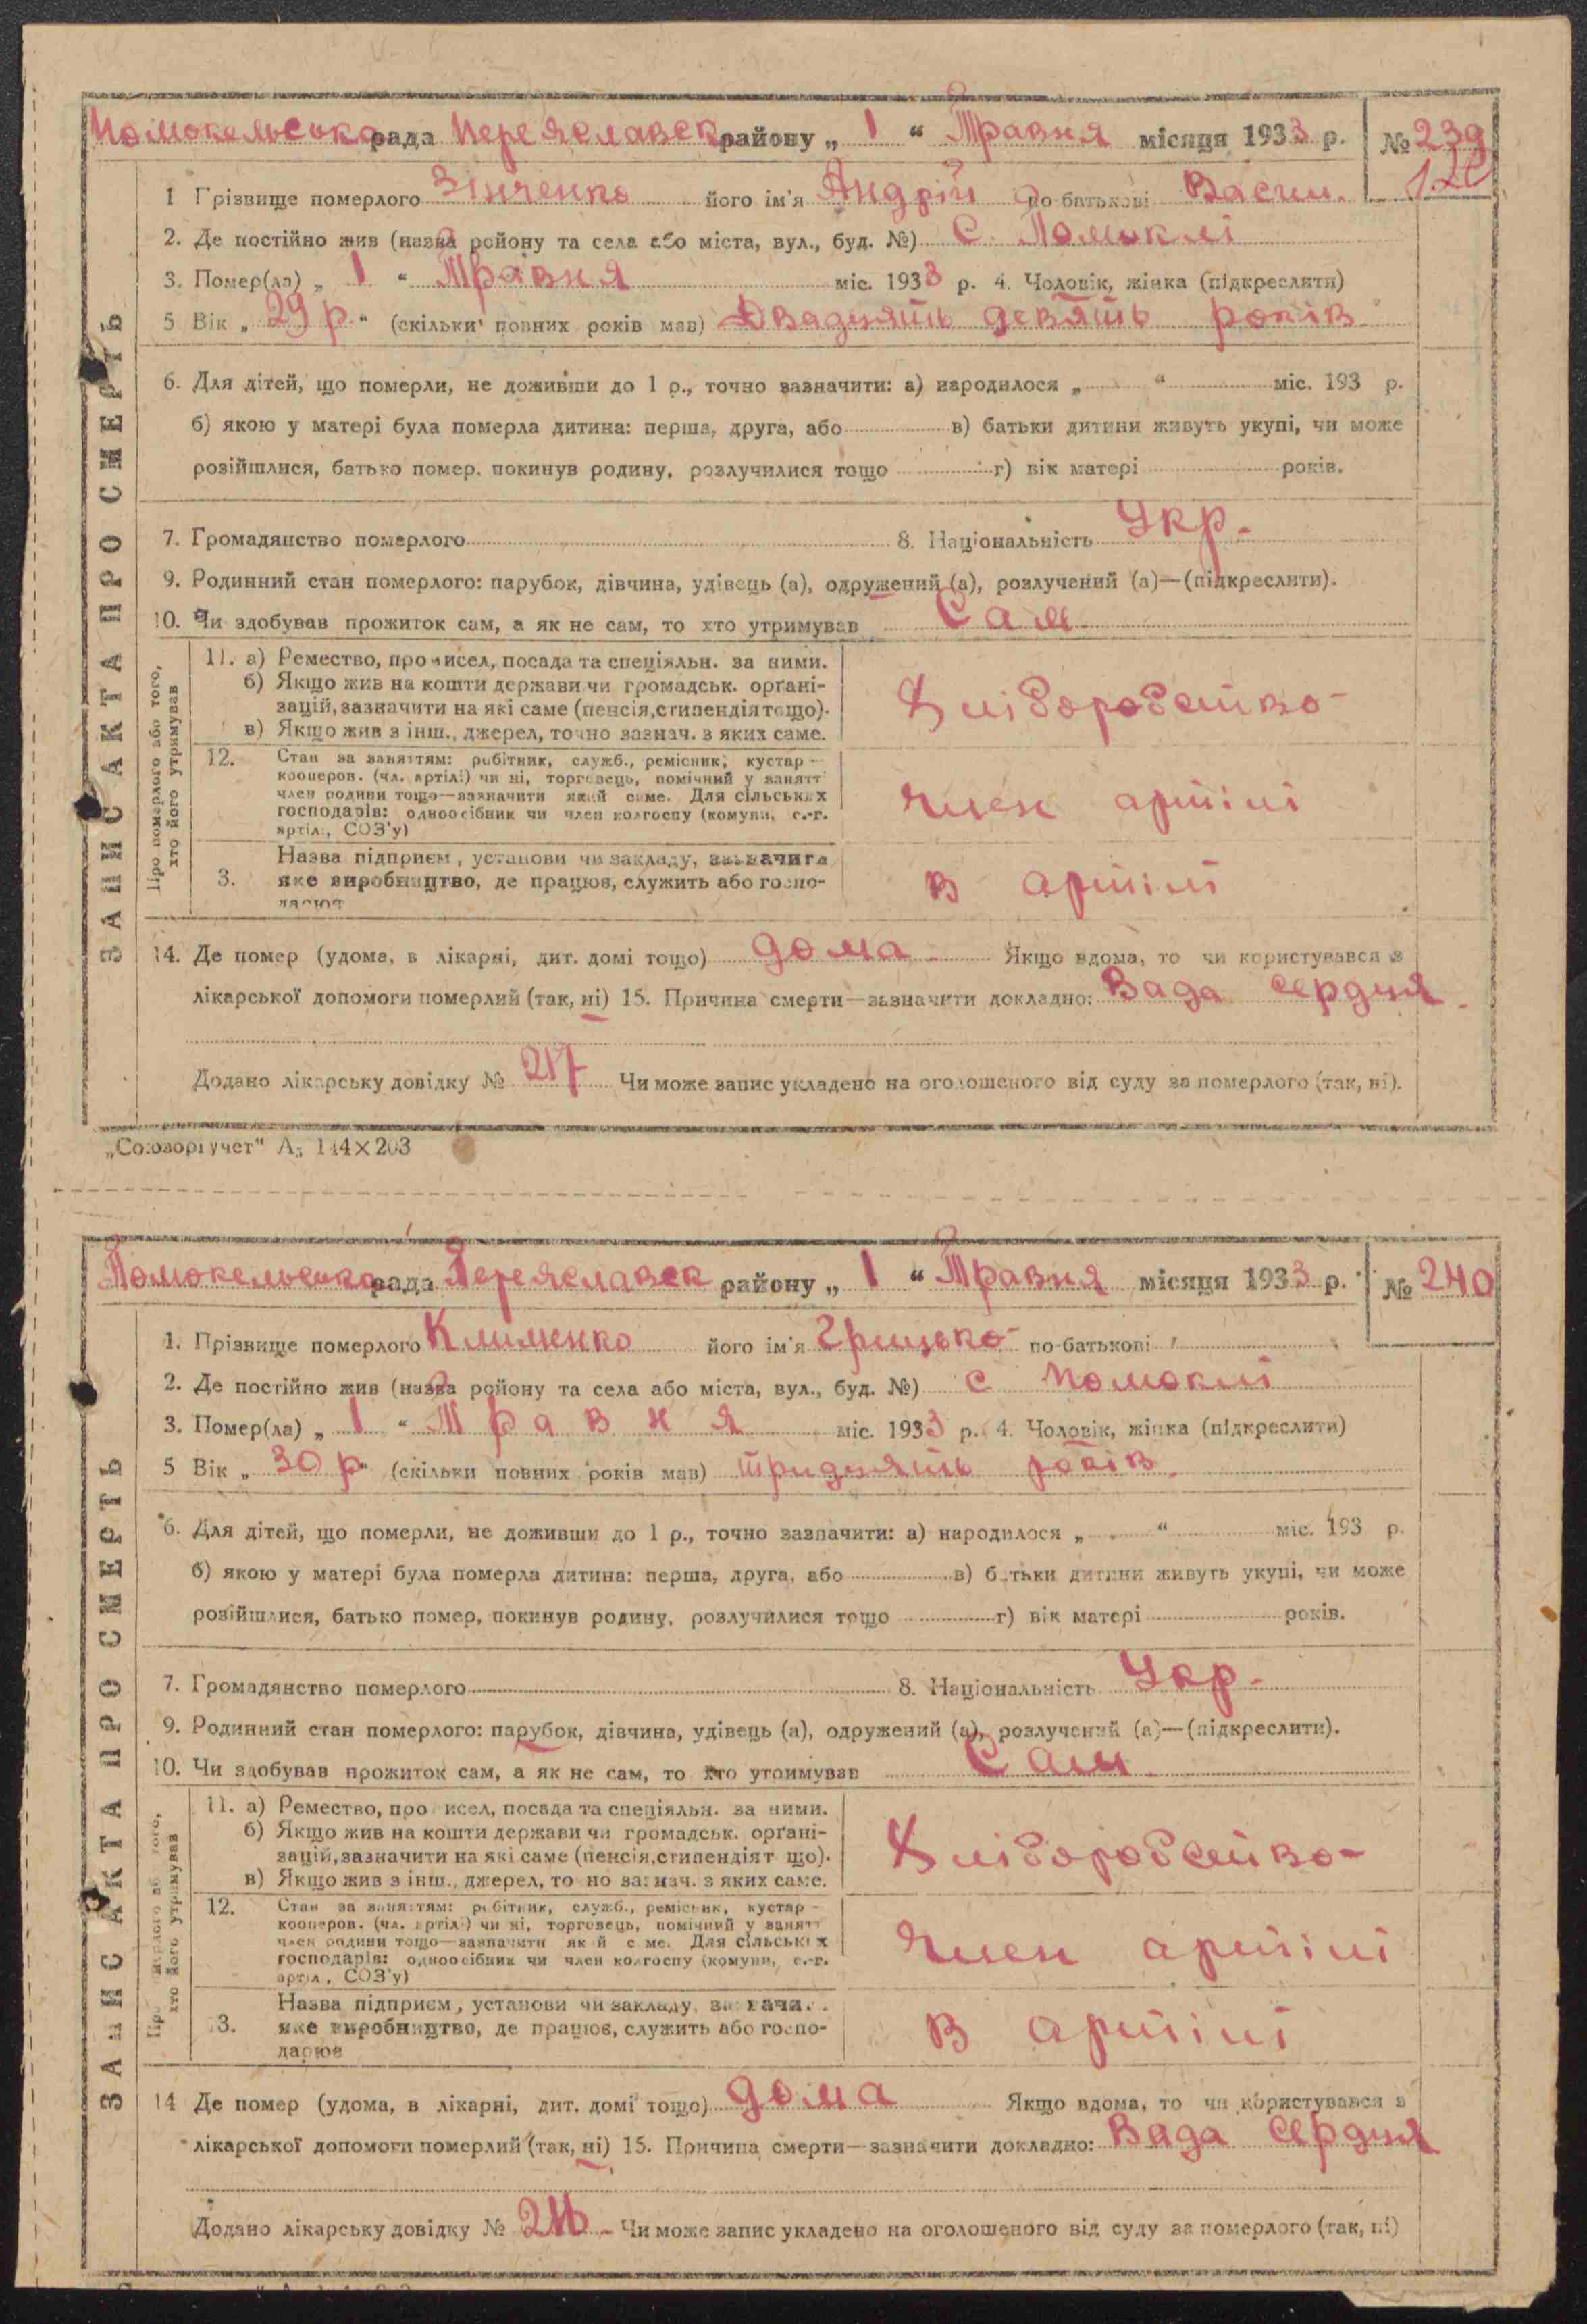 Помокельська рада Переяславск району „ 1 “ Травня місяця 1933 р. № 239
1 Грізвище померлого Зінченко його ім'я Андрій по-батькові Васил.
2. Де постійно жив (назва ройону та села або міста, вул., буд. №) с. Помоклі
3. Помер(ла) „ 1 “ Травня міс. 1933 р. 4. Чоловік, жінка (підкреслити)
5 Вік „ 29 р “ (скільки повних років мав) Двадцять девять років
6. Для дітей, що померли, не доживши до 1 р., точно зазначити: а) народилося „ “ міс. 193 р.
б) якою у матері була померла дитина: перша, друга, або в) батьки дитини живуть укупі, чи може
розійшлися, батько помер. покинув родину, розлучилися тощо г) вік матері років.
7. Громадянство померлого 8. Національність Укр.
9. Родинний стан померлого: парубок, дівчина, удівець (а), одружений (а), розлучений (а)—(підкреслити).
10. Чи здобував прожиток сам, а як не сам, то хто утримував Сам
ЗАПИС АКТА ПРО СМЕРТЬ
Про померлого або того, хто його утримував
11. а) Ремество, промисел, посада та спеціяльн. за ними.
б) Якщо жив на кошти держави чи громадськ. органі-
зацій, зазначити на які саме (пенсія, стипендія тощо).
в) Якщо жив з інш., джерел, точно зазнач. з яких саме.
Хліборобство
12. Стан за заняттям: робітник, служб., ремісник, кустар –
кооперов. (чл. артілі) чи ні, торговець, помічний у занятт
член родини тощо—зазначити який саме. Для сільських
господарів: одноосібник чи член колгоспу (комуни, с.-г.
артіл., СОЗ'у)
член артілі
3. Назва підприєм, установи чи закладу, зазначити
яке виробництво, де працює, служить або госпо-
дарює
в артілі
14. Де помер (удома, в лікарні, дит. домі тощо) дома Якщо вдома, то чи користувався з
лікарської допомоги померлий (так, ні) 15. Причина смерти—зазначити докладно: Вада сердця
Додано лікарську довідку № 217 Чи може запис укладено на оголошеного від суду за померлого (так, ні).
„Союзоргучет“ А5 144×203
Помокельська рада Переяславск району „ 1 “ Травня місяця 1933 р. № 240
1. Прізвище померлого Клименко його ім'я Грицько по-батькові
2. Де постійно жив (назва ройону та села або міста, вул., буд. №) с Помоклі
3. Помер(ла) „ 1 “ Травня міс. 1933 р. 4. Чоловік, жінка (підкреслити)
5 Вік „ 30 р “ (скільки повних років мав) тридцять років.
6. Для дітей, що померли, не доживши до 1 р., точно зазначити: а) народилося „ “ міс. 193 р.
б) якою у матері була померла дитина: перша, друга, або в) батьки дитини живуть укупі, чи може
розійшлися, батько помер, покинув родину, розлучилися тощо г) вік матері років.
7. Громадянство померлого 8. Національність Укр.
9. Родинний стан померлого: парубок, дівчина, удівець (а), одружений (а), розлучений (а)—(підкреслити).
10. Чи здобував прожиток сам, а як не сам, то хто утримував Сам
ЗАПИС АКТА ПРО СМЕРТЬ
Про померлого або того, хто його утримував
11. а) Ремество, промисел, посада та спеціяльн. за ними.
б) Якщо жив на кошти держави чи громадськ. органі-
зацій, зазначити на які саме (пенсія, стипендія тощо).
в) Якщо жив з інш., джерел, точно зазнач. з яких саме.
Хліборобство
12. Стан за заняттям: робітник, служб., ремісник, кустар –
кооперов. (чл. артілі) чи ні, торговець, помічний у занятт
член родини тощо—зазначити який саме. Для сільських
господарів: одноосібник чи член колгоспу (комуни, с.-г.
артіл., СОЗ'у)
член артілі
3. Назва підприєм, установи чи закладу, зазначити
яке виробництво, де працює, служить або госпо-
дарює
в артілі
14 Де помер (удома, в лікарні, дит. домі тощо) дома Якщо вдома, то чи користувався з
лікарської допомоги померлий (так, ні) 15. Причина смерти—зазначити докладно: Вада сердця
Додано лікарську довідку № Чи може запис укладено на оголошеного від суду за померлого (так, ні)